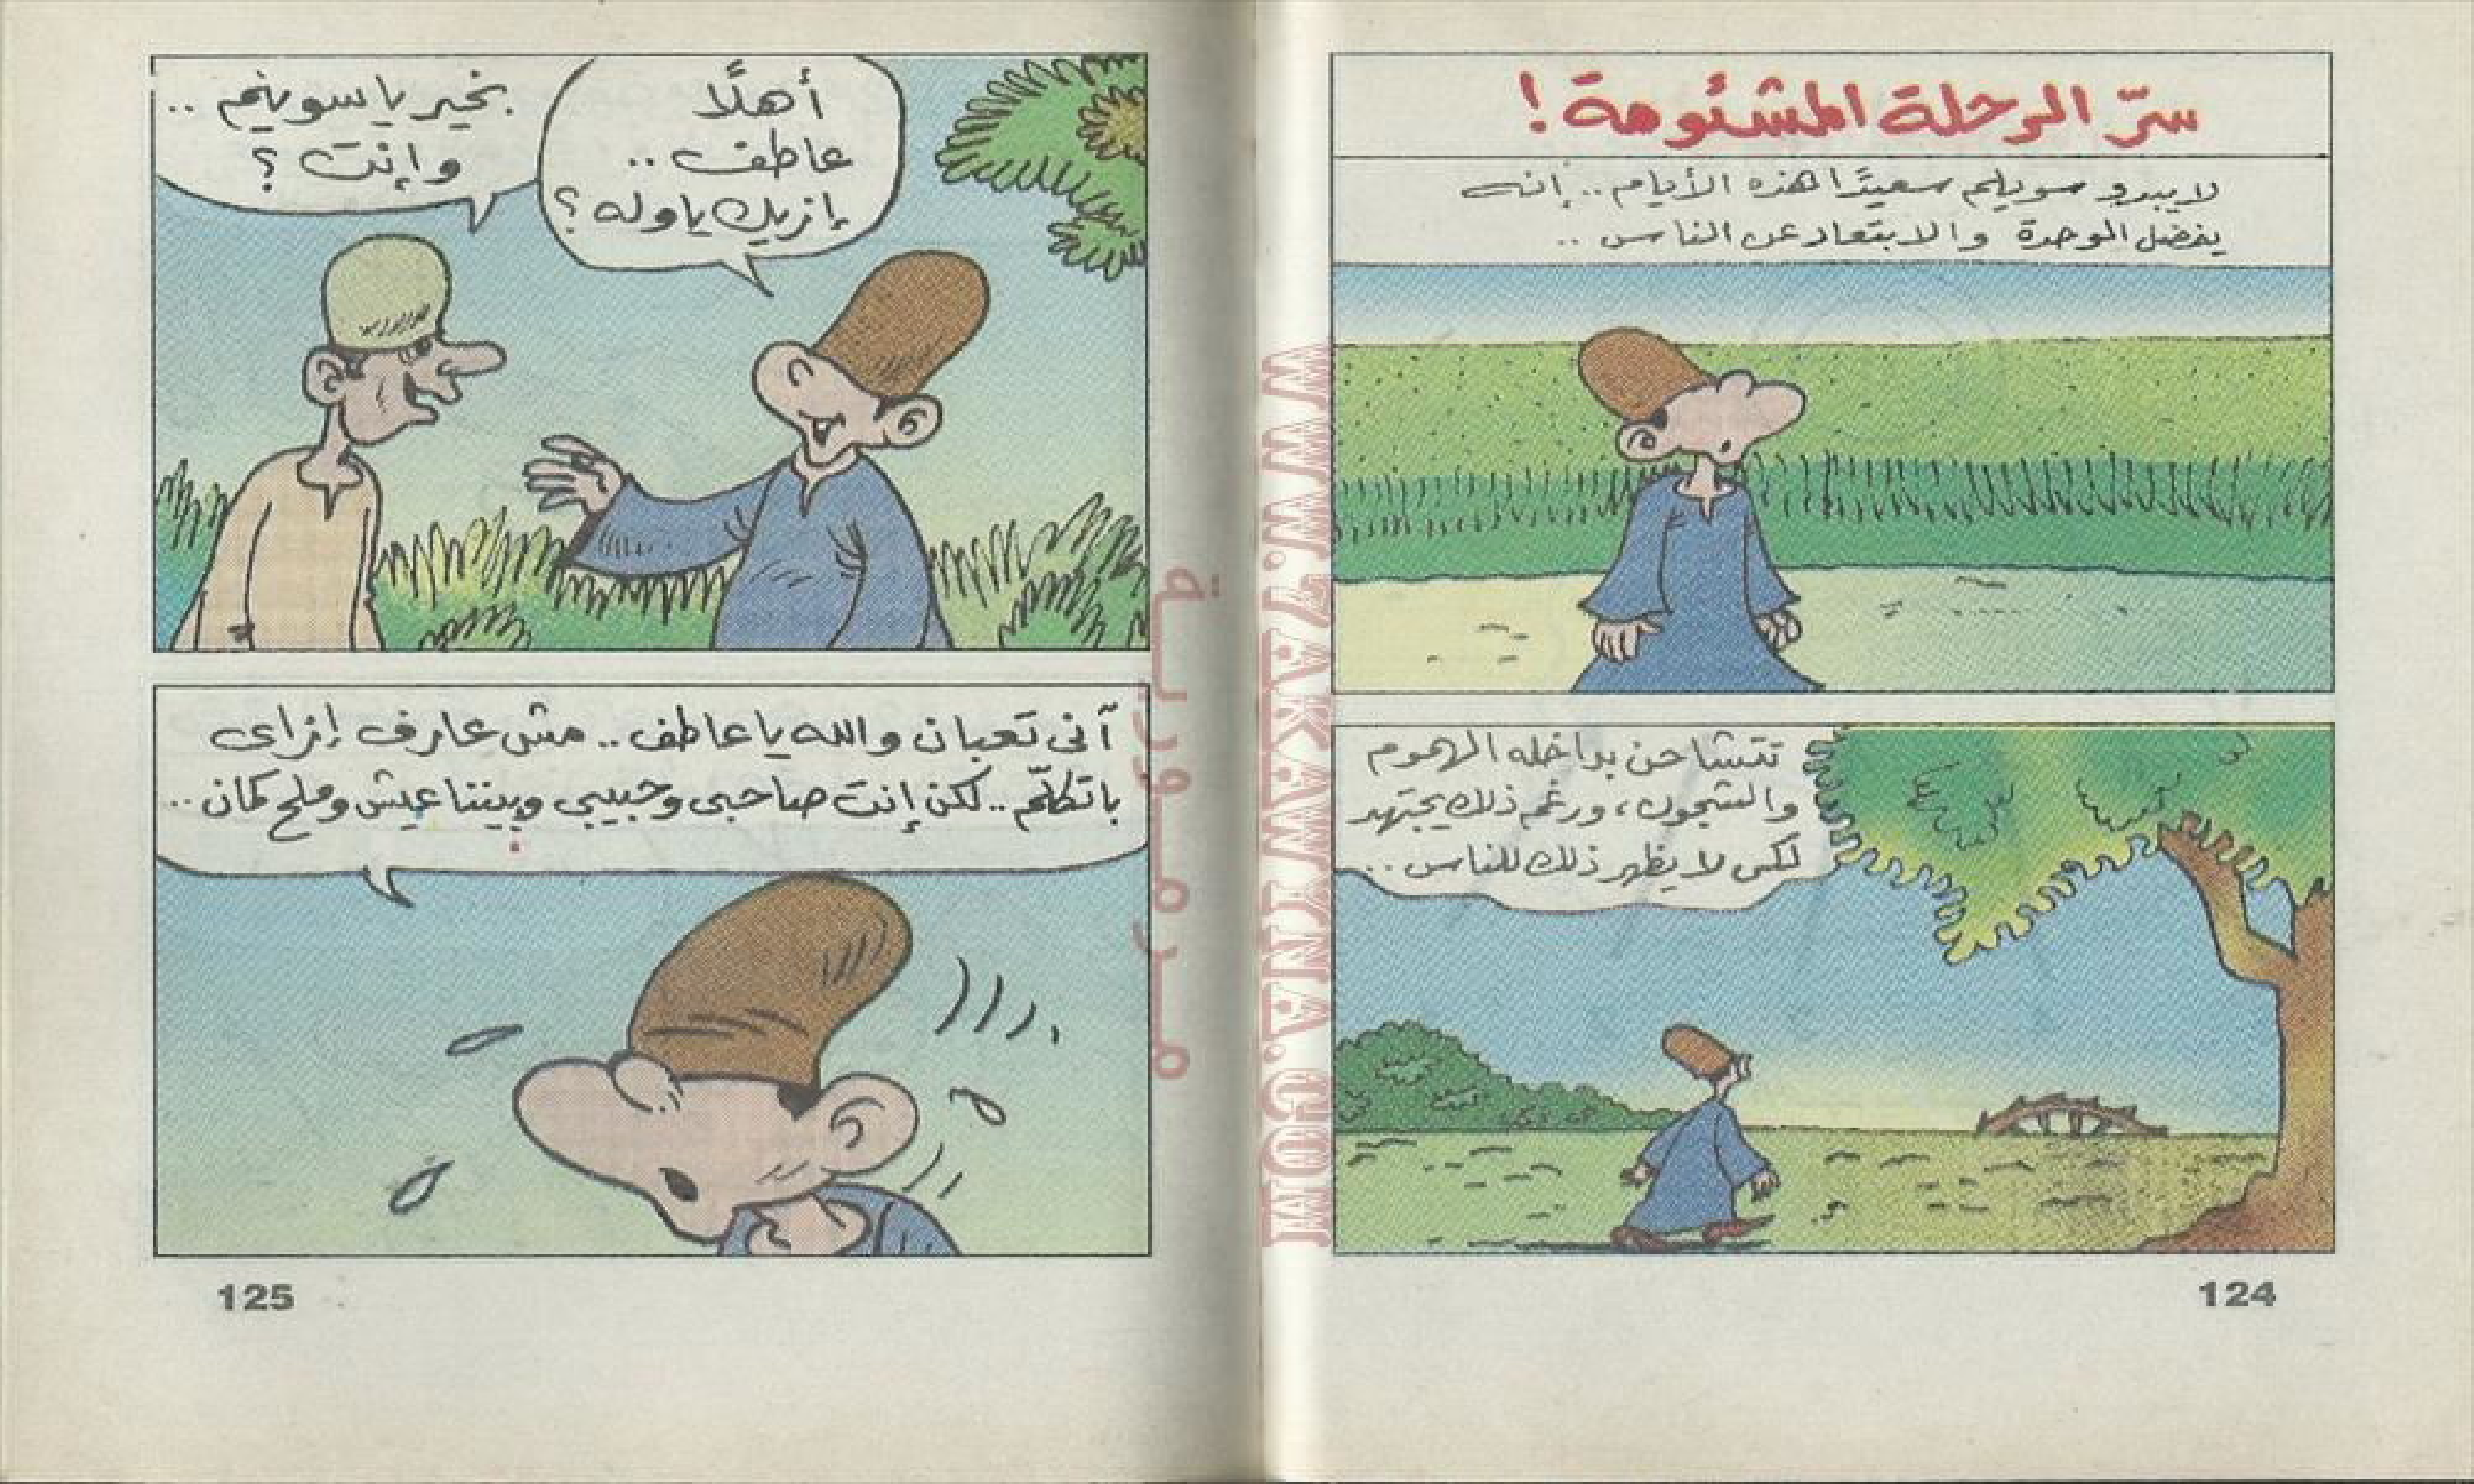 سرّ الرحلة المشئومة!
لا يبدو سويلم سعيدًا هذه الأيام.. إنه
يفضل الوحدة والابتعاد عن الناس..
تتشاحن بداخله الهموم
والشجون، ورغم ذلك يجتهد
لكى لا يظهر ذلك للناس..
124
أهلًا
عاطف..
إزيك ياوله؟
بخير يا سويلم..
وإنت؟
آنى تعبان والله يا عاطف.. مش عارف إزاى
باتكلّم.. لكن إنت صاحبى وحبيبى وبيننا عيش وملح كمان..
125
WWW.ZAKAWKNA.COM